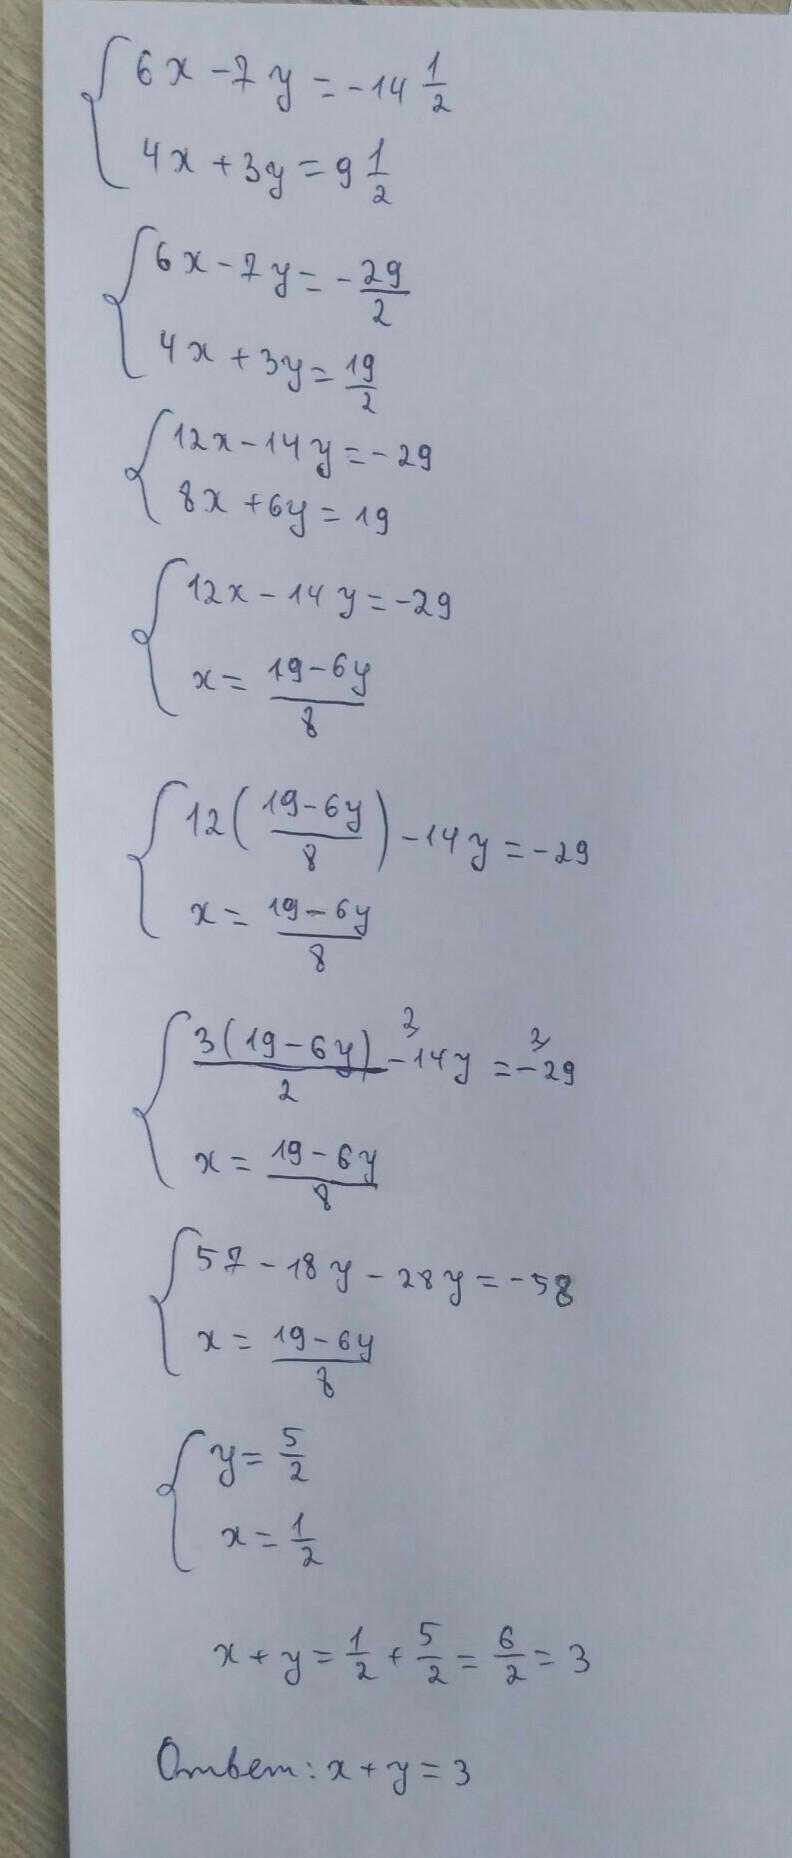 6x - 7y = -14 1/2
4x + 3y = 9 1/2
6x - 7y = - 29/2
4x + 3y = 19/2
12x - 14y = -29
8x + 6y = 19
12x - 14y = -29
x = (19-6y)/8
12((19-6y)/8) - 14y = -29
x = (19-6y)/8
3(19-6y)/2 - 14y = -29
x = (19-6y)/8
57 - 18y - 28y = -58
x = (19-6y)/8
y = 5/2
x = 1/2
x + y = 1/2 + 5/2 = 6/2 = 3
Ответ: x + y = 3